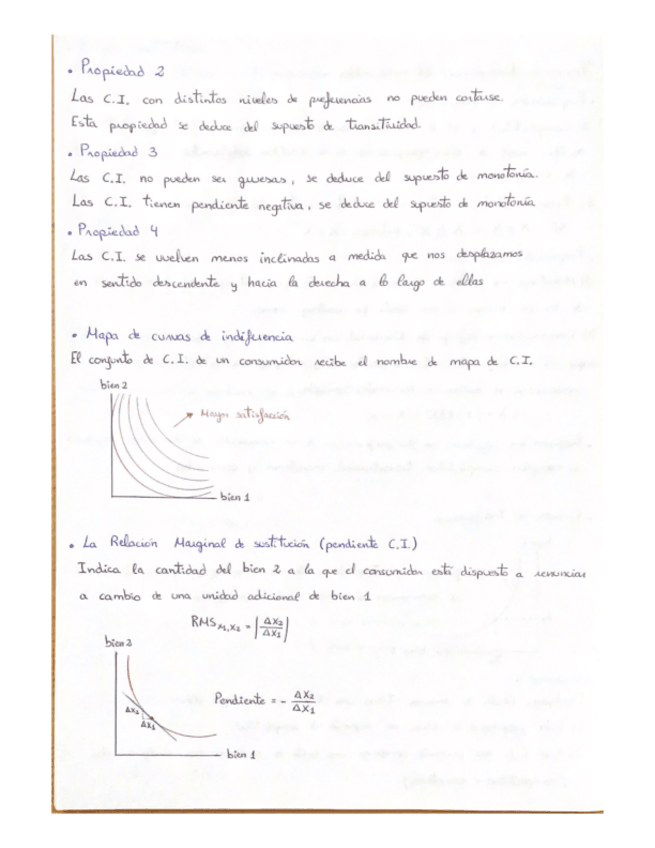 • Propiedad 2
Las C.I. con distintos niveles de preferencias no pueden cortarse.
Esta propiedad se deduce del supuesto de transitividad.
• Propiedad 3
Las C.I. no pueden ser gruesas, se deduce del supuesto de monotonía.
Las C.I. tienen pendiente negativa, se deduce del supuesto de monotonía
• Propiedad 4
Las C.I. se vuelven menos inclinadas a medida que nos desplazamos
en sentido descendente y hacia la derecha a lo largo de ellas
• Mapa de curvas de indiferencia
El conjunto de C.I. de un consumidor recibe el nombre de mapa de C.I.
bien 2
Mayor satisfacción
bien 1
• La Relación Marginal de sustitución (pendiente C.I.)
Indica la cantidad del bien 2 a la que el consumidor está dispuesto a renunciar
a cambio de una unidad adicional de bien 1
RMS x₁,x₂ = |ΔX₂/ΔX₁|
bien 2
Pendiente = - ΔX₂/ΔX₁
ΔX₂
ΔX₁
bien 1